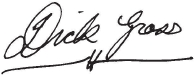 Dick Gross